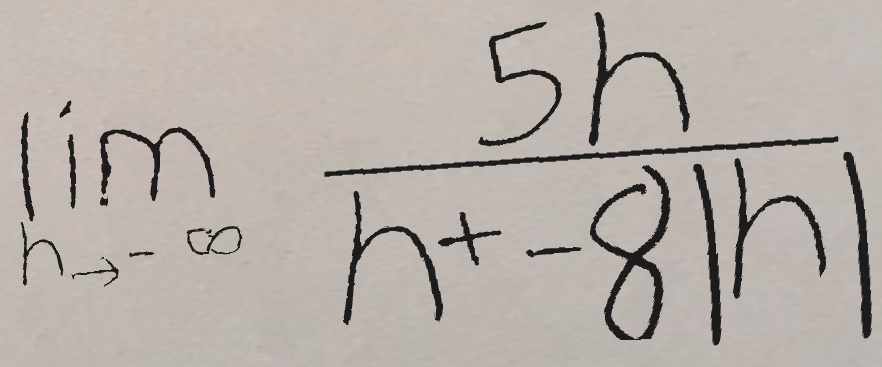 \lim_{h \to -\infty} \frac{5h}{h + -8|h|}